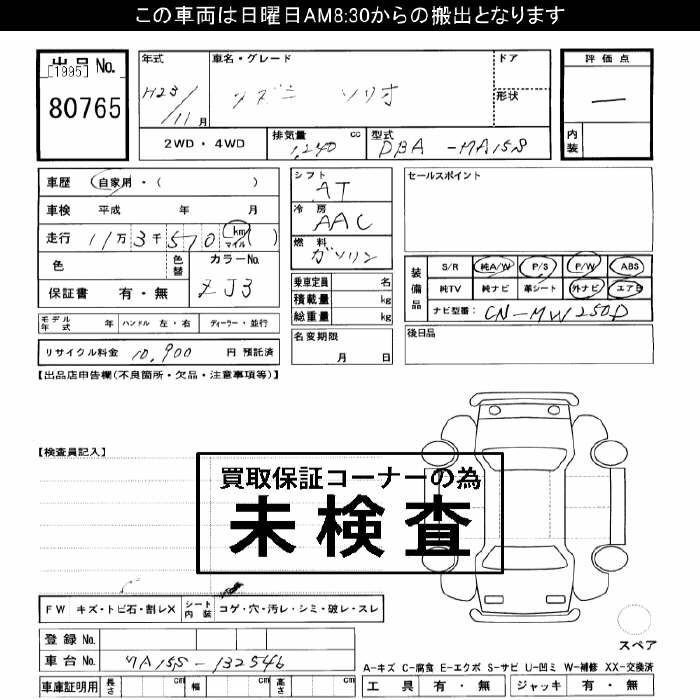 この車両は日曜日AM8:30からの搬出となります
出品 No.
[1995]
80765
年式 車名・グレード ドア
H23/11月 スズキ ソリオ 形状
2WD・4WD 排気量 1,240 cc 型式 DBA-MA15S
評価点
—
内装
車歴 自家用・( )
車検 平成 年 月
走行 11万3千510 km マイル ( )
色 色替 カラーNo.
保証書 有・無 ZJ3
モデル年式 年 ハンドル 左・右 ディーラー・並行
リサイクル料金 10,900 円 預託済
シフト AT
冷房 AAC
燃料 ガソリン
乗車定員 名
積載量 kg
総重量 kg
名変期限
月 日
セールスポイント
装備品 S/R 純A/W P/S P/W ABS
純TV 純ナビ 革シート 外ナビ エアB
ナビ型番: CN-MW250D
後日品
【出品店申告欄(不良箇所・欠品・注意事項等)】
【検査員記入】
買取保証コーナーの為
未検査
FW キズ・トビ石・割レX シート内装 コゲ・穴・汚レ・シミ・破レ・スレ
登録 No.
車台 No. MA15S-132546
車庫証明用 長さ cm 幅 cm 高さ cm
スペア
A-キズ C-腐食 E-エクボ S-サビ U-凹ミ W-補修 XX-交換済
工具 有・無 ジャッキ 有・無